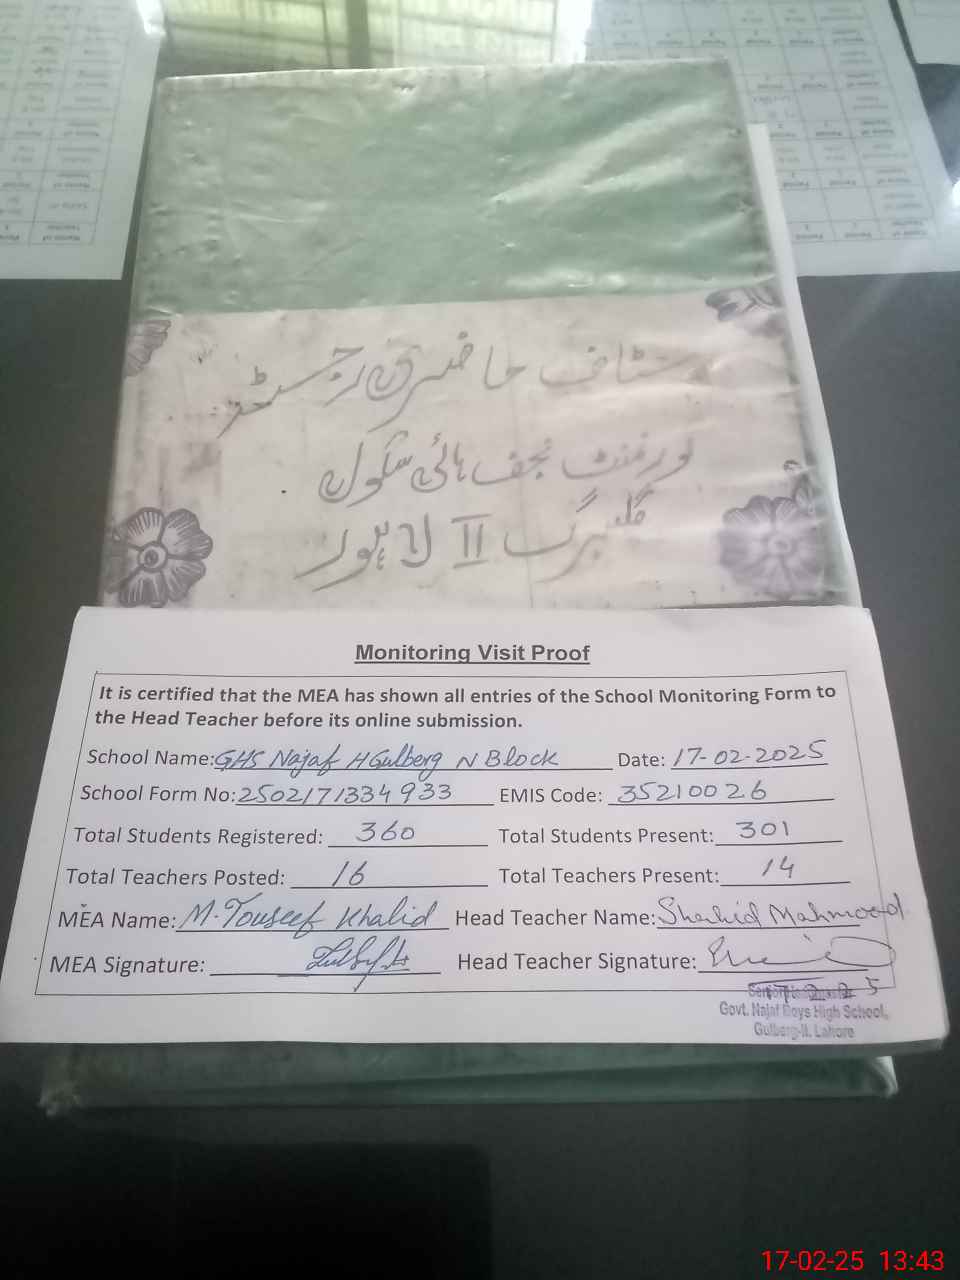 سٹاف حاضری رجسٹر
گورنمنٹ نجف ہائی سکول
گلبرگ II لاہور
Monitoring Visit Proof
It is certified that the MEA has shown all entries of the School Monitoring Form to
the Head Teacher before its online submission.
School Name: GHS Najaf H Gulberg N Block Date: 17-02-2025
School Form No: 2502171334933 EMIS Code: 35210026
Total Students Registered: 360 Total Students Present: 301
Total Teachers Posted: 16 Total Teachers Present: 14
MEA Name: M. Youseef Khalid Head Teacher Name: Shahid Mahmood
MEA Signature: Head Teacher Signature:
Govt. Najaf Boys High School,
Gulberg-II, Lahore
17-02-25 13:43